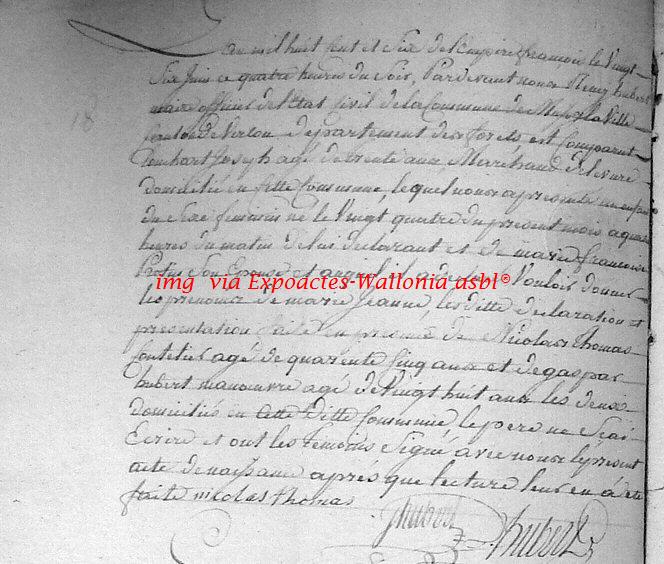 L'an mil huit cent et Six de l'Empire francois le Vingt
Six Juin a quatre heures du Soir, Pardevant nous hubert
maire officier de l'Etat Civil de la Commune de Mussy la Ville
18
Canton de Virton departement des forets est Comparu
Joseph agé de trente ans, Marchand
domicilié en Cette Commune, lequel nous a presenté un enfant
du Sexe feminin né le Vingt quatre du present mois a quatre
heures du matin de lui declarant et de marie francoise
Son Epouse et auquel il a declaré Vouloir donner
img via Expoactes-Wallonia asbl©
les prenoms de marie Jeanne, les ditte declaration et
presentation faite en presence de Nicolas thomas
agé de quarente Cinq ans et de gaspar
hubert manouvre agé de Vingt huit ans les deux
domiciliés en Cette ditte Commune, le pere ne Scai
Ecrire et ont les temoins Signé avec nous le present
acte de naissance aprés que lecture leur en á été
faite nicolas thomas
Jhubert hubert